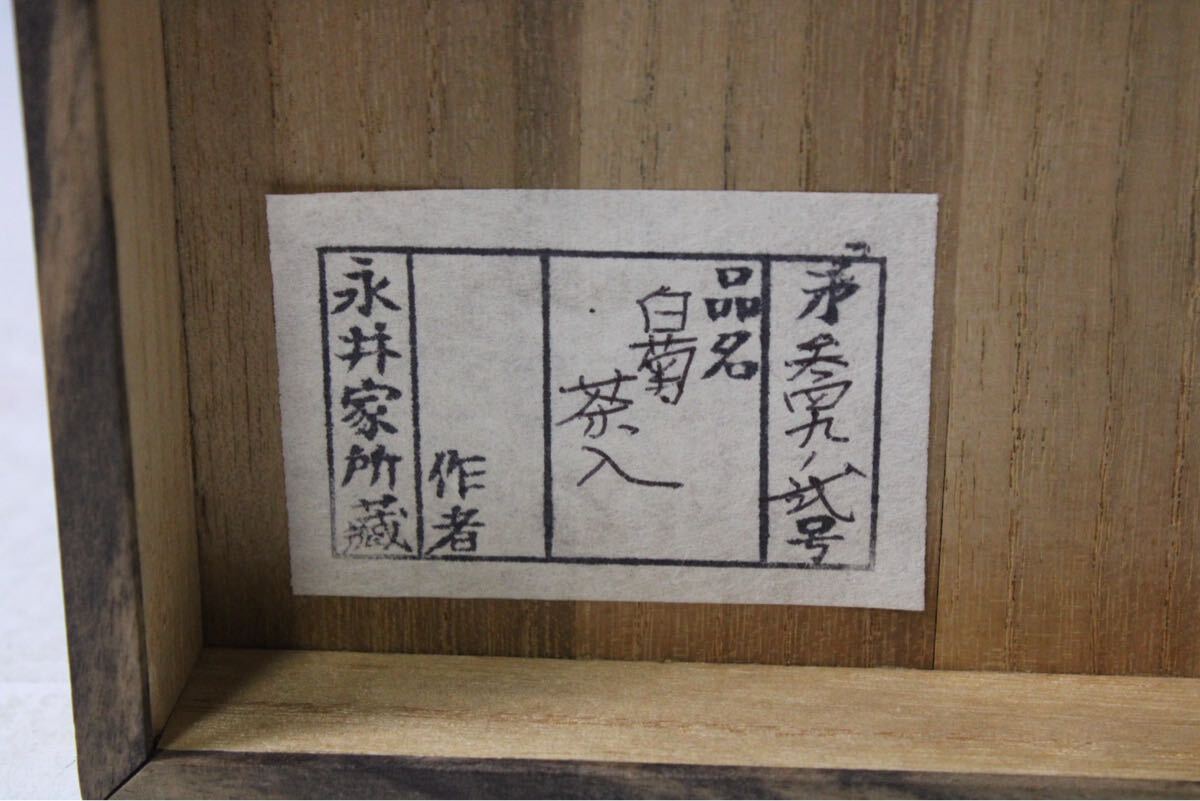 第 四九ノ弐号
品名
白菊
茶入
作者
永井家所蔵